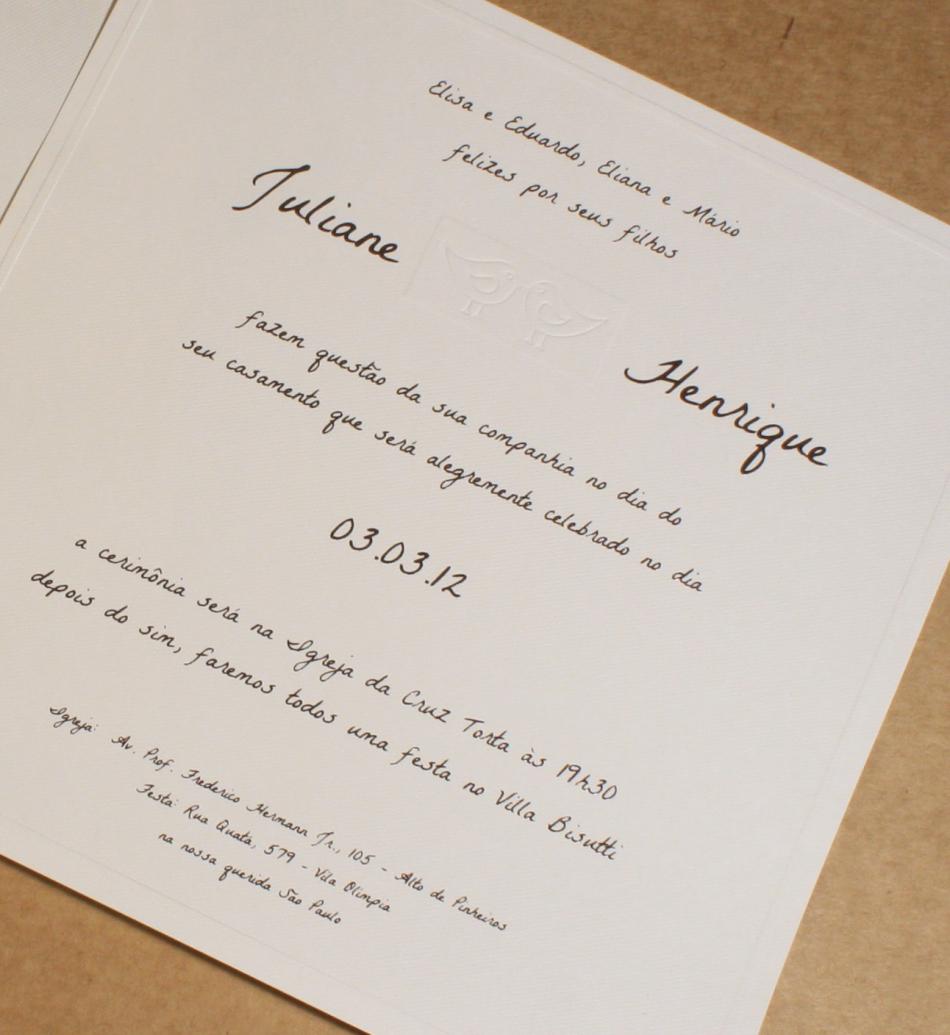 Elisa e Eduardo, Eliana e Mário
felizes por seus filhos
Juliane
Henrique
fazem questão da sua companhia no dia do
seu casamento que será alegremente celebrado no dia
03.03.12
a cerimônia será na Igreja da Cruz Torta às 19h30
depois do sim, faremos todos uma festa no Villa Bisutti
Igreja: Av. Prof. Frederico Hermann Jr., 105 - Alto de Pinheiros
Festa: Rua Quatá, 579 - Vila Olímpia
na nossa querida São Paulo